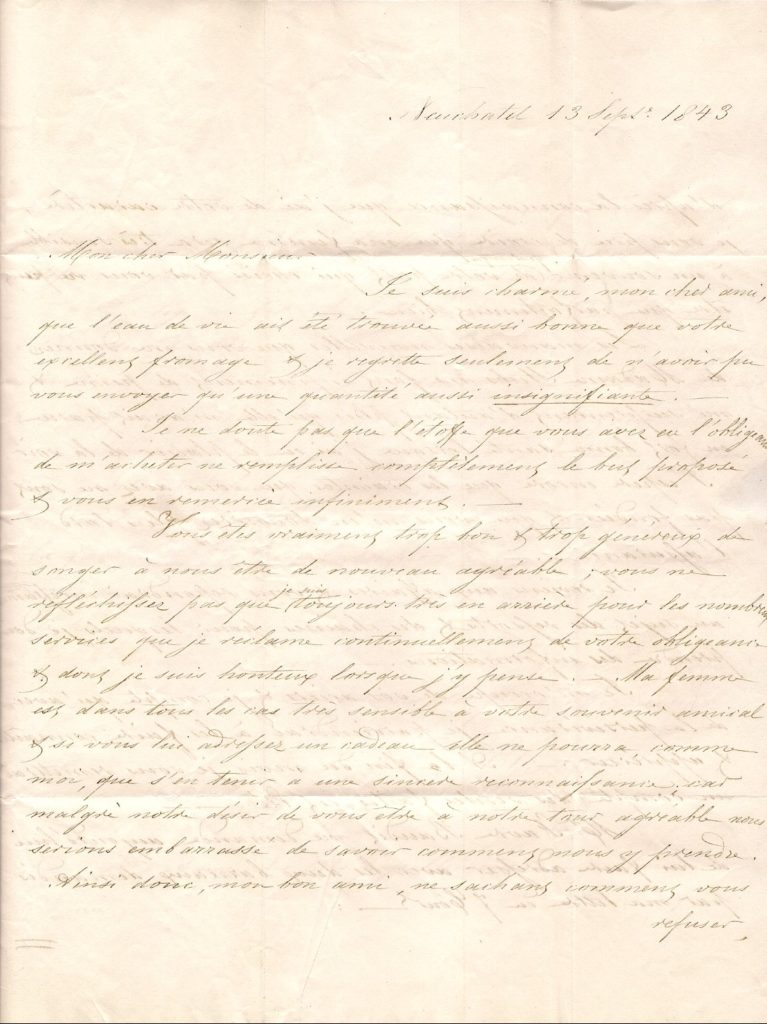 Neuchatel 13 Sepr. 1843
Mon cher Monsieur
Je suis charmé, mon cher ami,
que l'eau de vie ait été trouvée aussi bonne que votre
excellent fromage & je regrette seulement de n'avoir pu
vous envoyer qu'une quantité aussi insignifiante. —
Je ne doute pas que l'étoffe que vous avez eu l'obligeance
de m'acheter ne remplisse complètement le but proposé
& vous en remercie infiniment. —
Vous êtes vraiment trop bon & trop généreux de
songer à nous être de nouveau agréable ; vous ne
réfléchissez pas que je suis toujours très en arrière pour les nombreux
services que je réclame continuellement de votre obligeance
& dont je suis honteux lorsque j'y pense. — Ma femme
est dans tous les cas très sensible à votre souvenir amical
& si vous lui adressez un cadeau elle ne pourra, comme
moi, que s'en tenir a une sincère reconnaissance, car
malgré notre désir de vous être a notre tour agréable nous
serions embarrassé de savoir comment nous y prendre.
Ainsi donc, mon bon ami, ne sachant comment vous
refuser,